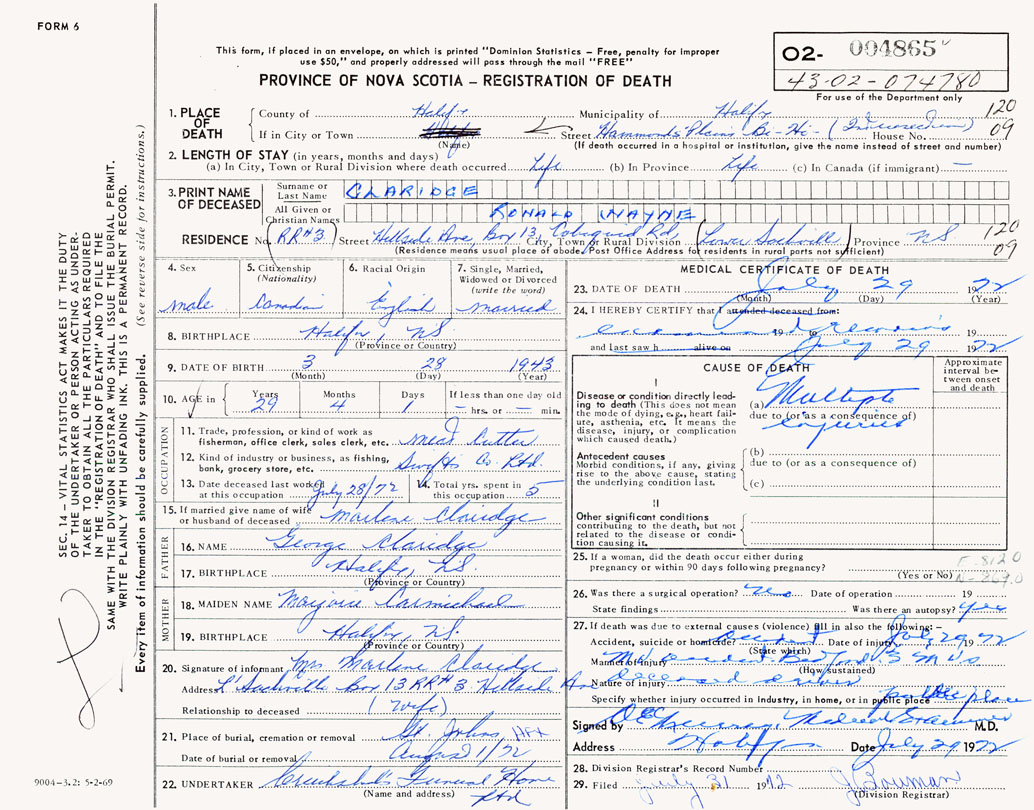 FORM 6
This form, if placed in an envelope, on which is printed "Dominion Statistics – Free, penalty for improper
use $50," and properly addressed will pass through the mail "FREE"
PROVINCE OF NOVA SCOTIA – REGISTRATION OF DEATH
O2- 004865
43-02-074780
For use of the Department only
SEC. 14 – VITAL STATISTICS ACT MAKES IT THE DUTY
OF THE UNDERTAKER OR PERSON ACTING AS UNDER-
TAKER TO OBTAIN ALL THE PARTICULARS REQUIRED
IN THE "REGISTRATION OF DEATH" AND TO FILE THE
SAME WITH THE DIVISION REGISTRAR WHO SHALL ISSUE THE BURIAL PERMIT.
WRITE PLAINLY WITH UNFADING INK. THIS IS A PERMANENT RECORD.
Every item of information should be carefully supplied. (See reverse side for instructions.)
1. PLACE OF DEATH
County of Halifx Municipality of Halifx 120
If in City or Town Street Hammonds Plains Bi-Hi- (Intersection) House No. 09
(Name) (If death occurred in a hospital or institution, give the name instead of street and number)
2. LENGTH OF STAY (in years, months and days)
(a) In City, Town or Rural Division where death occurred Life (b) In Province Life (c) In Canada (if immigrant) —
3. PRINT NAME OF DECEASED
Surname or Last Name CLARIDGE
All Given or Christian Names RONALD WAYNE
RESIDENCE No. RR#3 Street Hillside Ave, Box 13, Cobequid Rd, City, Town or Rural Division Lower Sackville Province NS 120 09
(Residence means usual place of abode. Post Office Address for residents in rural parts not sufficient)
4. Sex male
5. Citizenship (Nationality) Canadian
6. Racial Origin English
7. Single, Married, Widowed or Divorced (write the word) married
8. BIRTHPLACE Halifx, NS.
(Province or Country)
9. DATE OF BIRTH 3 28 1943
(Month) (Day) (Year)
10. AGE in Years 29 Months 4 Days 1 If less than one day old – hrs. or – min.
OCCUPATION
11. Trade, profession or kind of work as
fisherman, office clerk, sales clerk, etc. Meat Cutter
12. Kind of industry or business, as fishing,
bank, grocery store, etc. Swifts Co. Ltd.
13. Date deceased last worked
at this occupation July 28/72
14. Total yrs. spent in
this occupation 5
15. If married give name of wife
or husband of deceased Marlene Claridge
FATHER
16. NAME George Claridge
17. BIRTHPLACE Halifx, N.S.
(Province or Country)
MOTHER
18. MAIDEN NAME Marjorie Carmichael
19. BIRTHPLACE Halifx, N.S.
(Province or Country)
20. Signature of informant Mrs Marlene Claridge
Address L'Sackville Box 13 RR#3 Hillside Ave
Relationship to deceased (Wife)
21. Place of burial, cremation or removal St. Johns, HFX
Date of burial or removal August 1/72
22. UNDERTAKER Cruikshalls Funeral Home
(Name and address) Ltd
MEDICAL CERTIFICATE OF DEATH
23. DATE OF DEATH July 29 1972
(Month) (Day) (Year)
24. I HEREBY CERTIFY that I attended deceased from:
19 19
and last saw h alive on July 29 1972
CAUSE OF DEATH
Approximate interval between onset and death
I
Disease or condition directly lead-
ing to death (This does not mean
the mode of dying, e.g., heart fail-
ure, asthenia, etc. It means the
disease, injury, or complication
which caused death.)
(a) Multiple
due to (or as a consequence of)
injuries
Antecedent causes
Morbid conditions, if any, giving
rise to the above cause, stating
the underlying condition last.
(b)
due to (or as a consequence of)
(c)
II
Other significant conditions
contributing to the death, but not
related to the disease or condi-
tion causing it.
25. If a woman, did the death occur either during
pregnancy or within 90 days following pregnancy?
(Yes or No)
E-8120
N-8690
26. Was there a surgical operation? No Date of operation 19
State findings Was there an autopsy? yes
27. If death was due to external causes (violence) fill in also the following: –
Accident, suicide or homicide? accident Date of injury July 29 1972
(State which)
Manner of injury
(How sustained)
Nature of injury deceased driver
Specify whether injury occurred in industry, in home, or in public place public place
Signed by Medical Examiner M.D.
Address Halifx Date July 29 1972
28. Division Registrar's Record Number
29. Filed July 31 1972 J. Bowman
(Division Registrar)
9004-3.2: 5-2-69